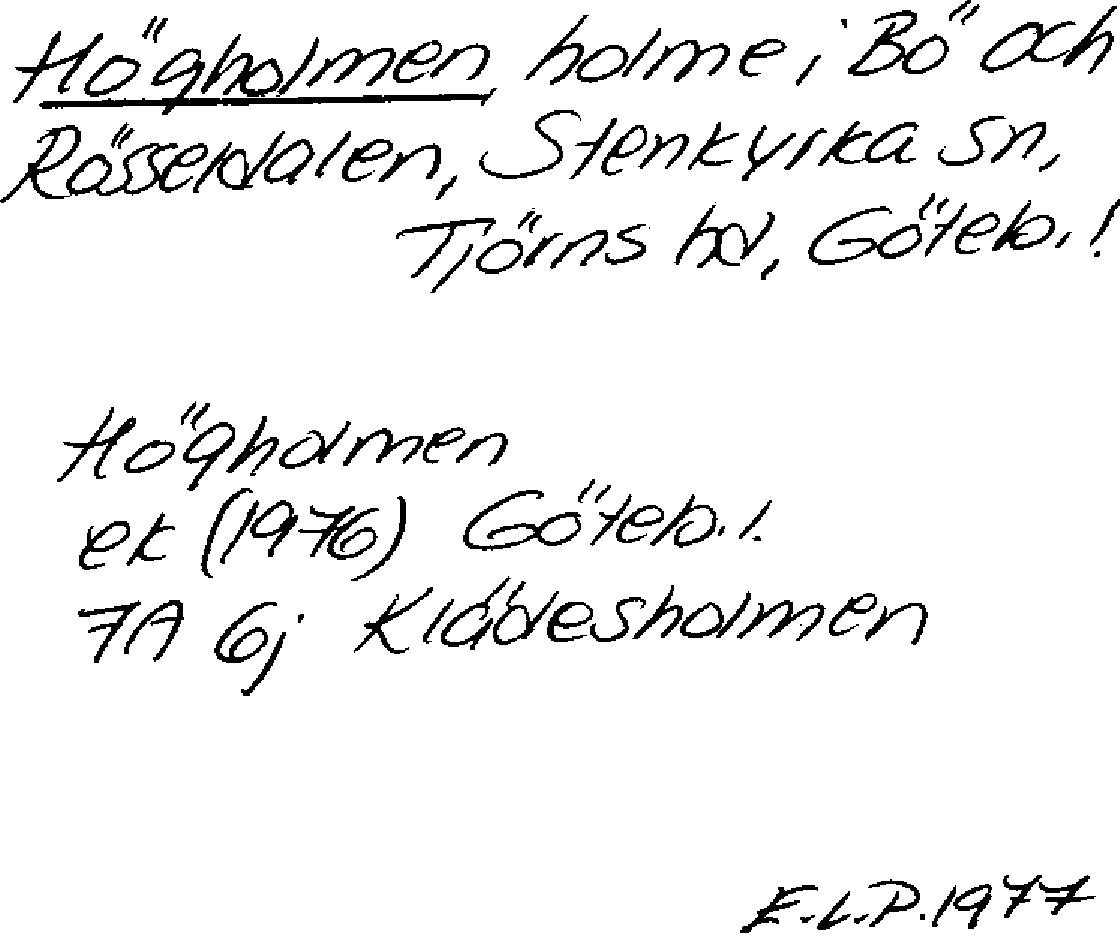 Högholmen, holme i Bö och
Rösseldalen, Stenkyrka sn,
Tjörns hd, Göteb. l
Högholmen
ek (1976) Göteb. l.
7A 6j Klädesholmen
E.L.P. 1977